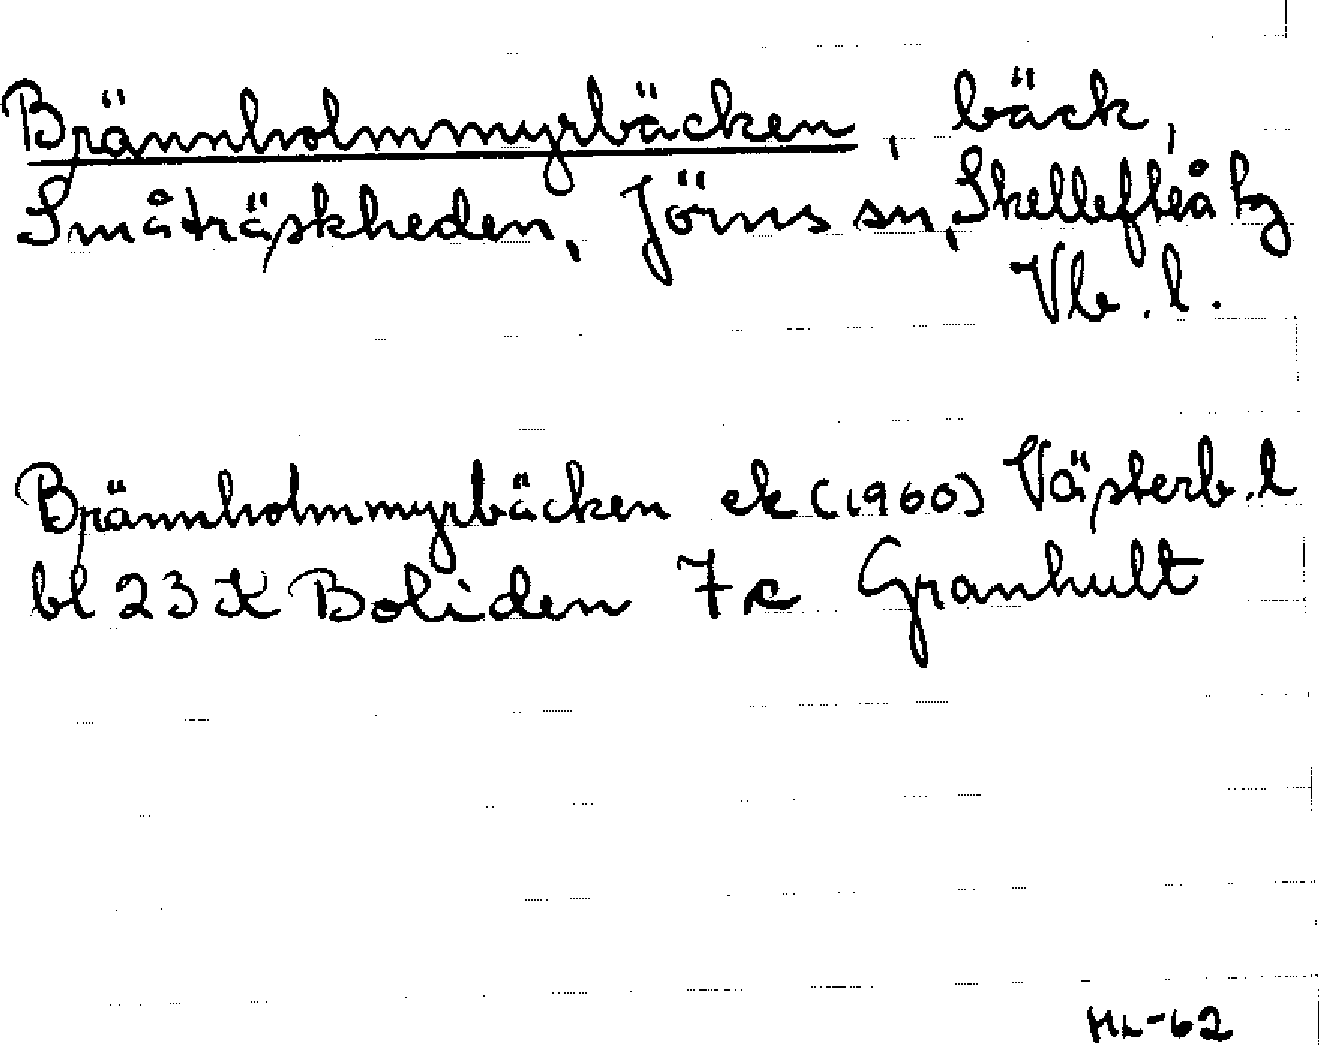 Brännholmmyrbäcken, bäck,
Småträskheden, Jörns sn, Skellefteå tg
Vb. l.
Brännholmmyrbäcken ek (1960) Västerb. l
bl 23 K Boliden 7 c Granhult
HL-62